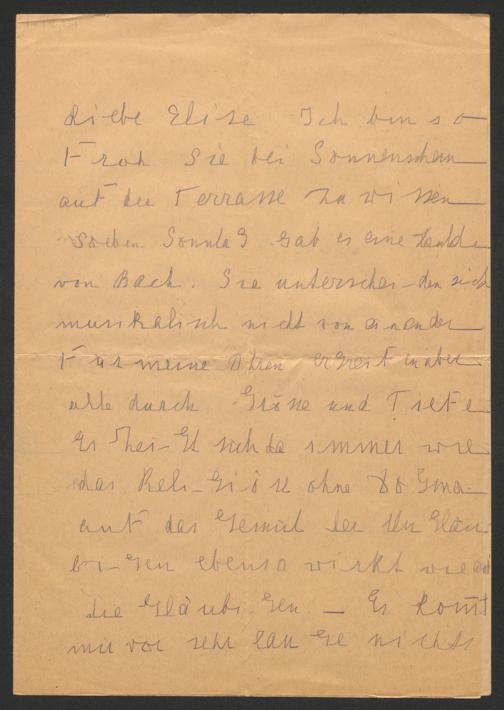 Liebe Elise Ich bin so
Froh Sie bei Sonnenschein
auf der Terrasse zu wissen
soeben Sonntag gab es eine
von Bach. Sie unterschei-den sich
musikalisch nicht von einander
Für meine Ohren ergreift aber
alle durch Grösse und Tiefe
Er zei-gt sich da immer wie
das Reli-giöse ohne Dogma
auf das Gemüt der Un Gläu
bi-gen ebenso wirkt wie auf
die Gläubi-gen — Es kommt
mir vor sehr lange nichts